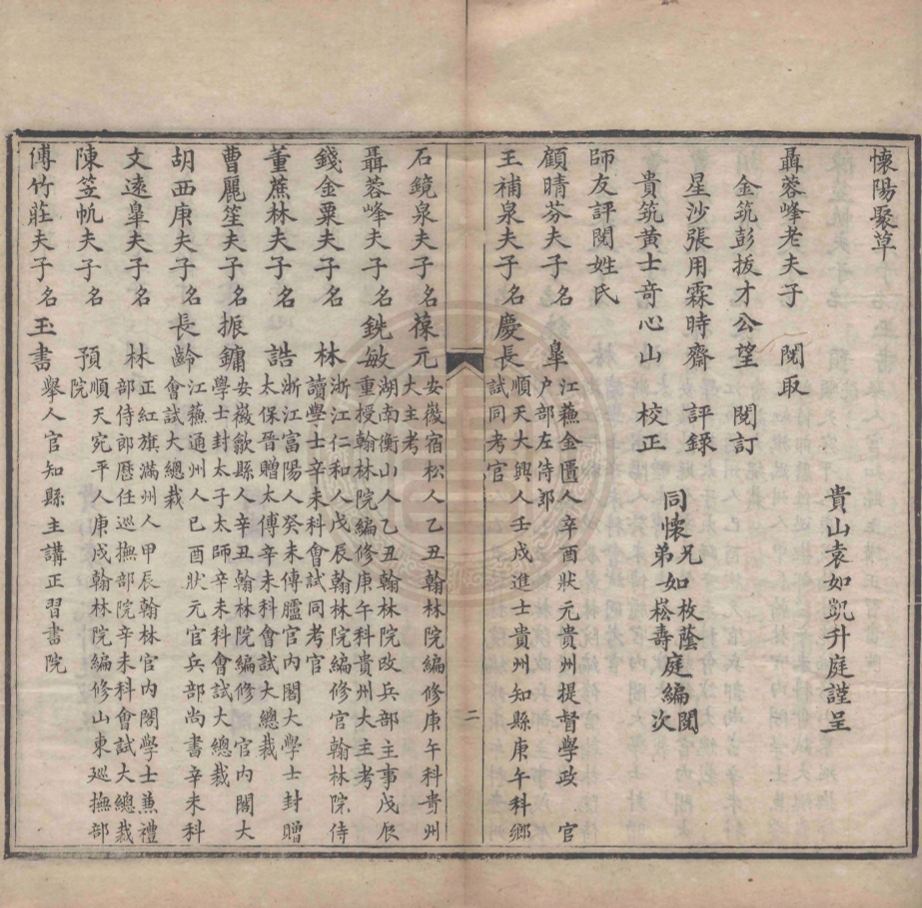 懷陽聚草
貴山袁如凱升庭謹呈
聶蓉峰老夫子 閱取
金筑彭拔才公望 閱訂
星沙張用霖時齋 評錄
同懷兄如枚蔭庭編閱
弟如崧壽庭編次
貴筑黃士奇心山 校正
師友評閱姓氏
顧晴芬夫子名 皐 江蘇金匱人辛酉狀元貴州提督學政 官
户部左侍郎
王補泉夫子名慶長 順天大興人壬戌進士貴州知縣庚午科鄉
試同考官
二
石鏡泉夫子名葆元 安薇宿松人乙丑翰林院編修庚午科貴州
大主考
聶蓉峰夫子名銑敏 湖南衡山人乙丑翰林院改兵部主事戊辰
重授翰林院編修庚午科貴州大主考
錢金粟夫子名 林 浙江仁和人戊辰翰林院編修官翰林院侍
讀學士辛未科會試同考官
董蔗林夫子名 誥 浙江富陽人癸未傳臚官內閣大學士封贈
太保晉贈太傅辛未科會試大總裁
曹麗笙夫子名振鏞 安薇歙縣人辛丑翰林院編修官內閣大
學士封太子太師辛未科會試大總裁
胡西庚夫子名長齡 江蘓通州人己酉狀元官兵部尚書辛未科
會試大總裁
文遠皐夫子名 林 正紅旗滿州人甲辰翰林官內閣學士兼禮
部侍郎歷任巡撫部院辛未科會試大總裁
陳笠帆夫子名 預 順天宛平人庚戌翰林院編修山東廵撫部
院
傅竹莊夫子名玉書 舉人官知縣主講正習書院